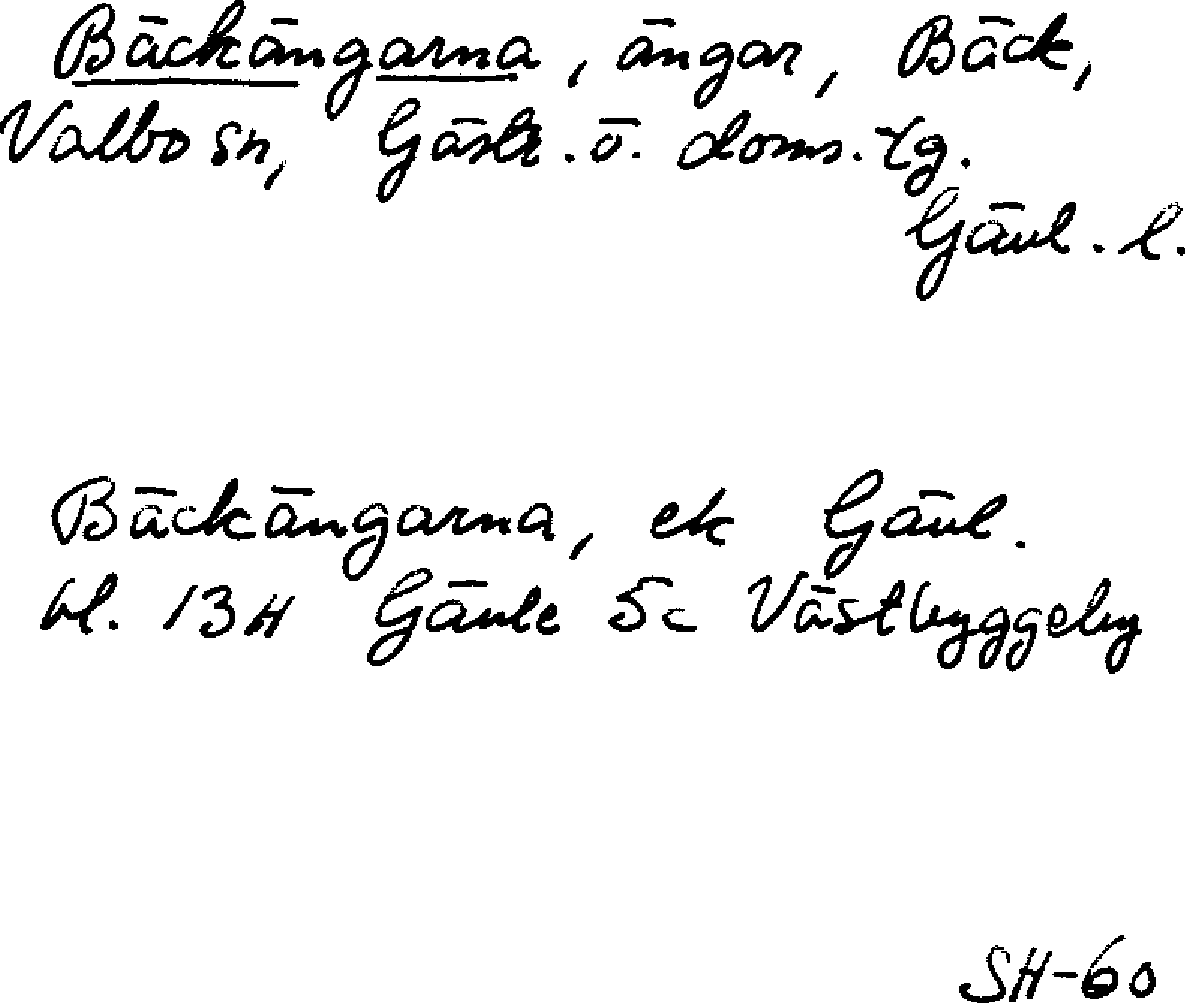 Bäckängarna, ängar, Bäck,
Valbo sn, Gästr. ö. doms. tg.
Gävl. l.
Bäckängarna, ek Gävl.
bl. 13H Gävle 5c Västbyggeby
SH-60